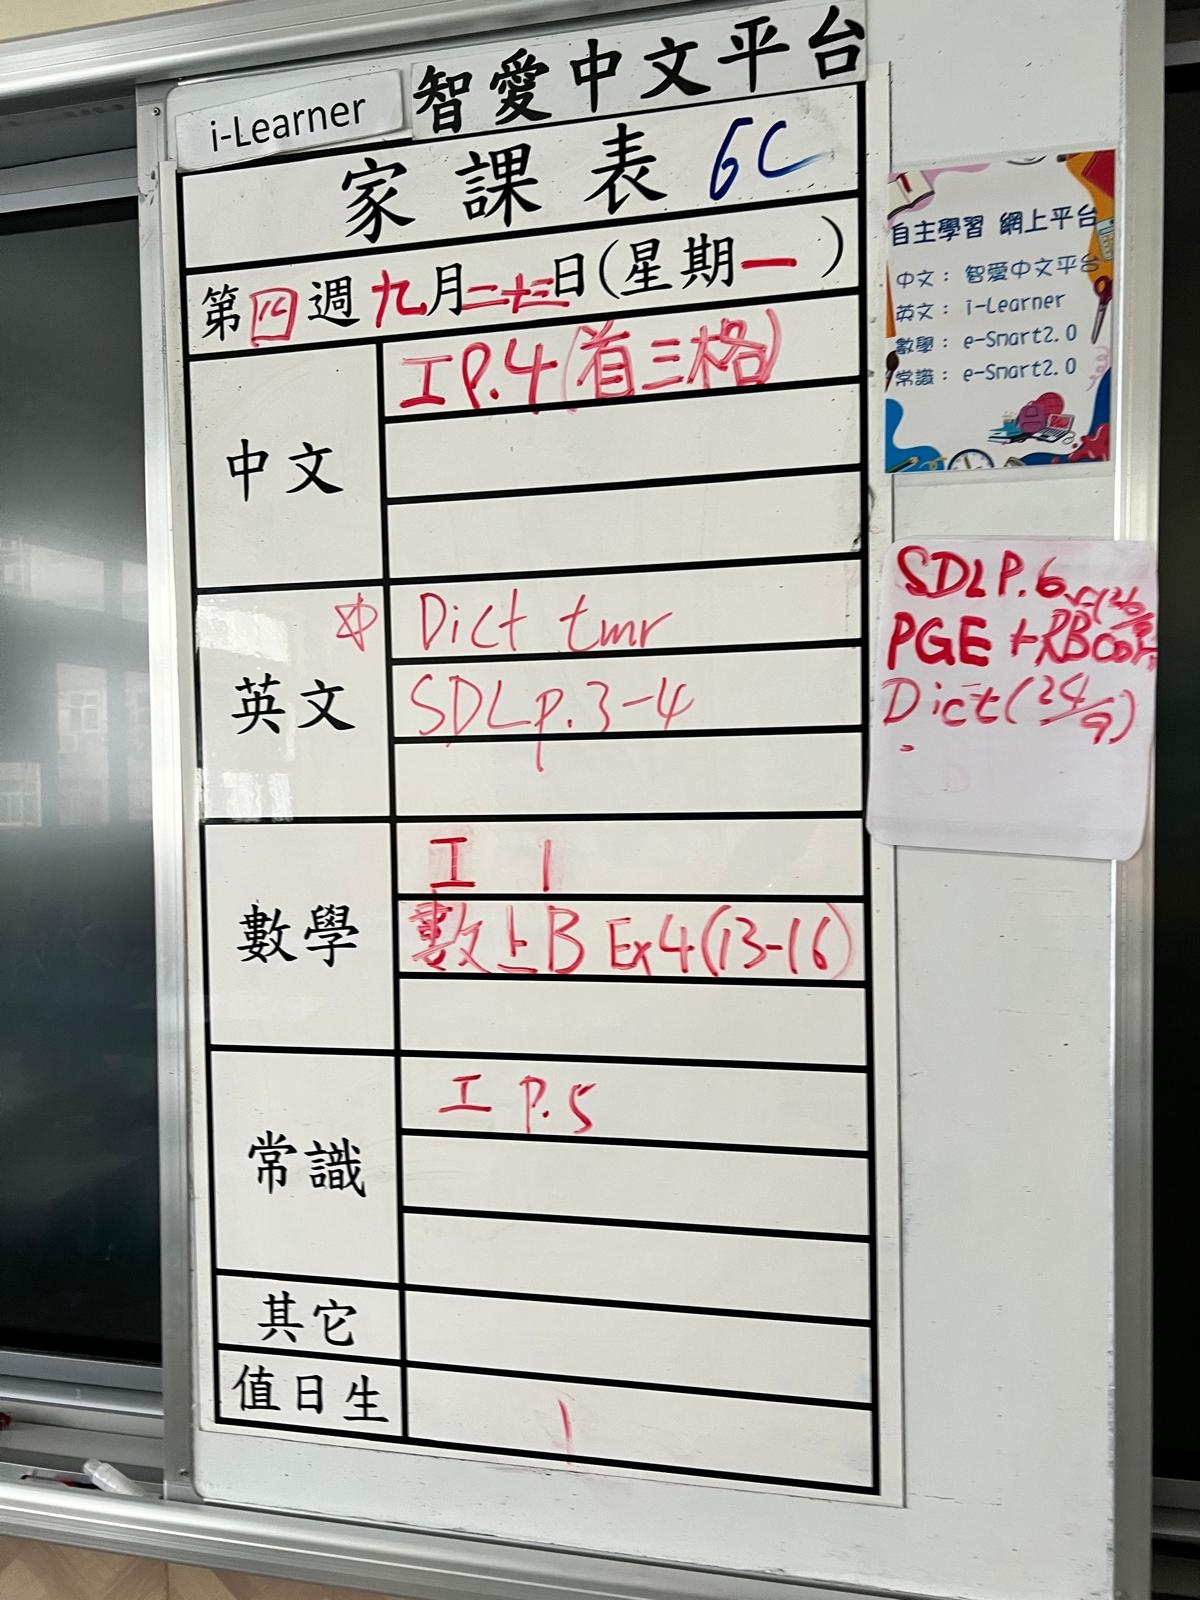 i-Learner 智愛中文平台
家課表 6C
第四週九月二十三日(星期一)
中文
工 P.4 (首三格)
英文
Dict tmr
SDL p.3-4
數學
工 1
數上B Ex 4 (13-16)
常識
工 P.5
其它
值日生
1
自主學習 網上平台
中文： 智愛中文平台
英文： i-Learner
數學： e-Smart2.0
常識： e-Smart2.0
SDL P.6
PGE + RB
Dict (24/9)